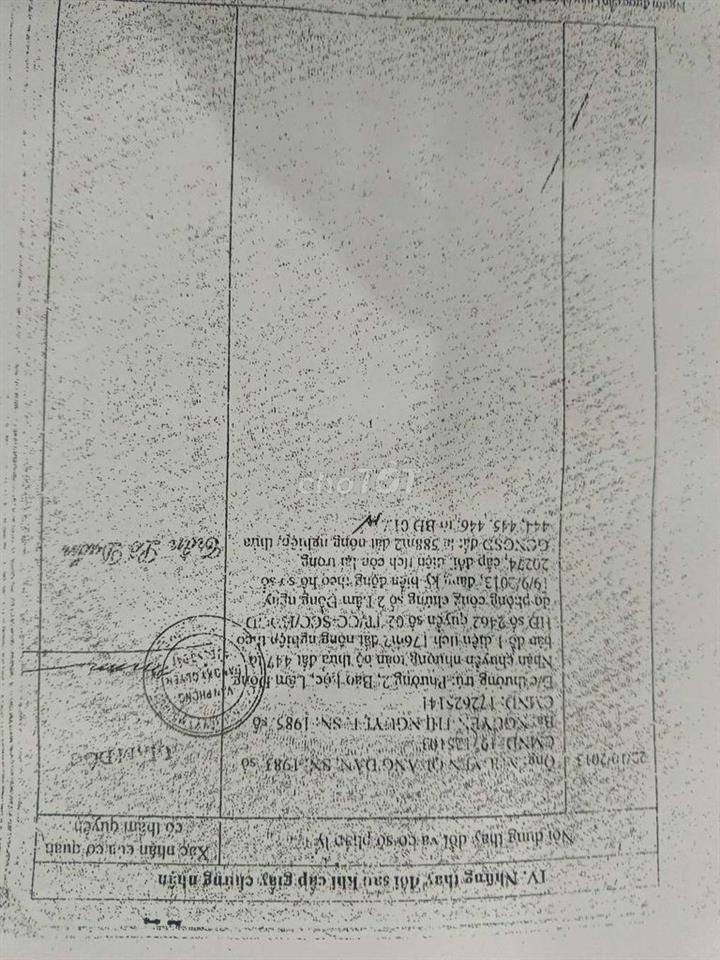 IV. Những thay đổi sau khi cấp giấy chứng nhận
Nội dung thay đổi và cơ sở pháp lý
Xác nhận của cơ quan
có thẩm quyền
22/10/2013
Ông: QUANG DÂN, SN: 1983 số
CMND:
Bà: NGUYỄN THỊ NGUYỆT, SN: 1985, số
CMND: 172625141
Đ/c thường trú: Phường 2, Bảo Lộc, Lâm Đồng
Nhận chuyển nhượng toàn bộ thửa đất 447 tờ
bản đồ diện tích 176m² đất nông nghiệp theo
HĐ số 2462 quyển số 02
do phòng công chứng số 2 Lâm Đồng ngày
19/9/2013, đăng ký biến động theo hồ sơ số
20274, cấp đổi, diện tích còn lại trong
GCNQSD đất: là 588m2 đất nông nghiệp, thửa
444, 445, 446, tờ BĐ
GIÁM ĐỐC
VĂN PHÒNG
Trần
chợTỐT